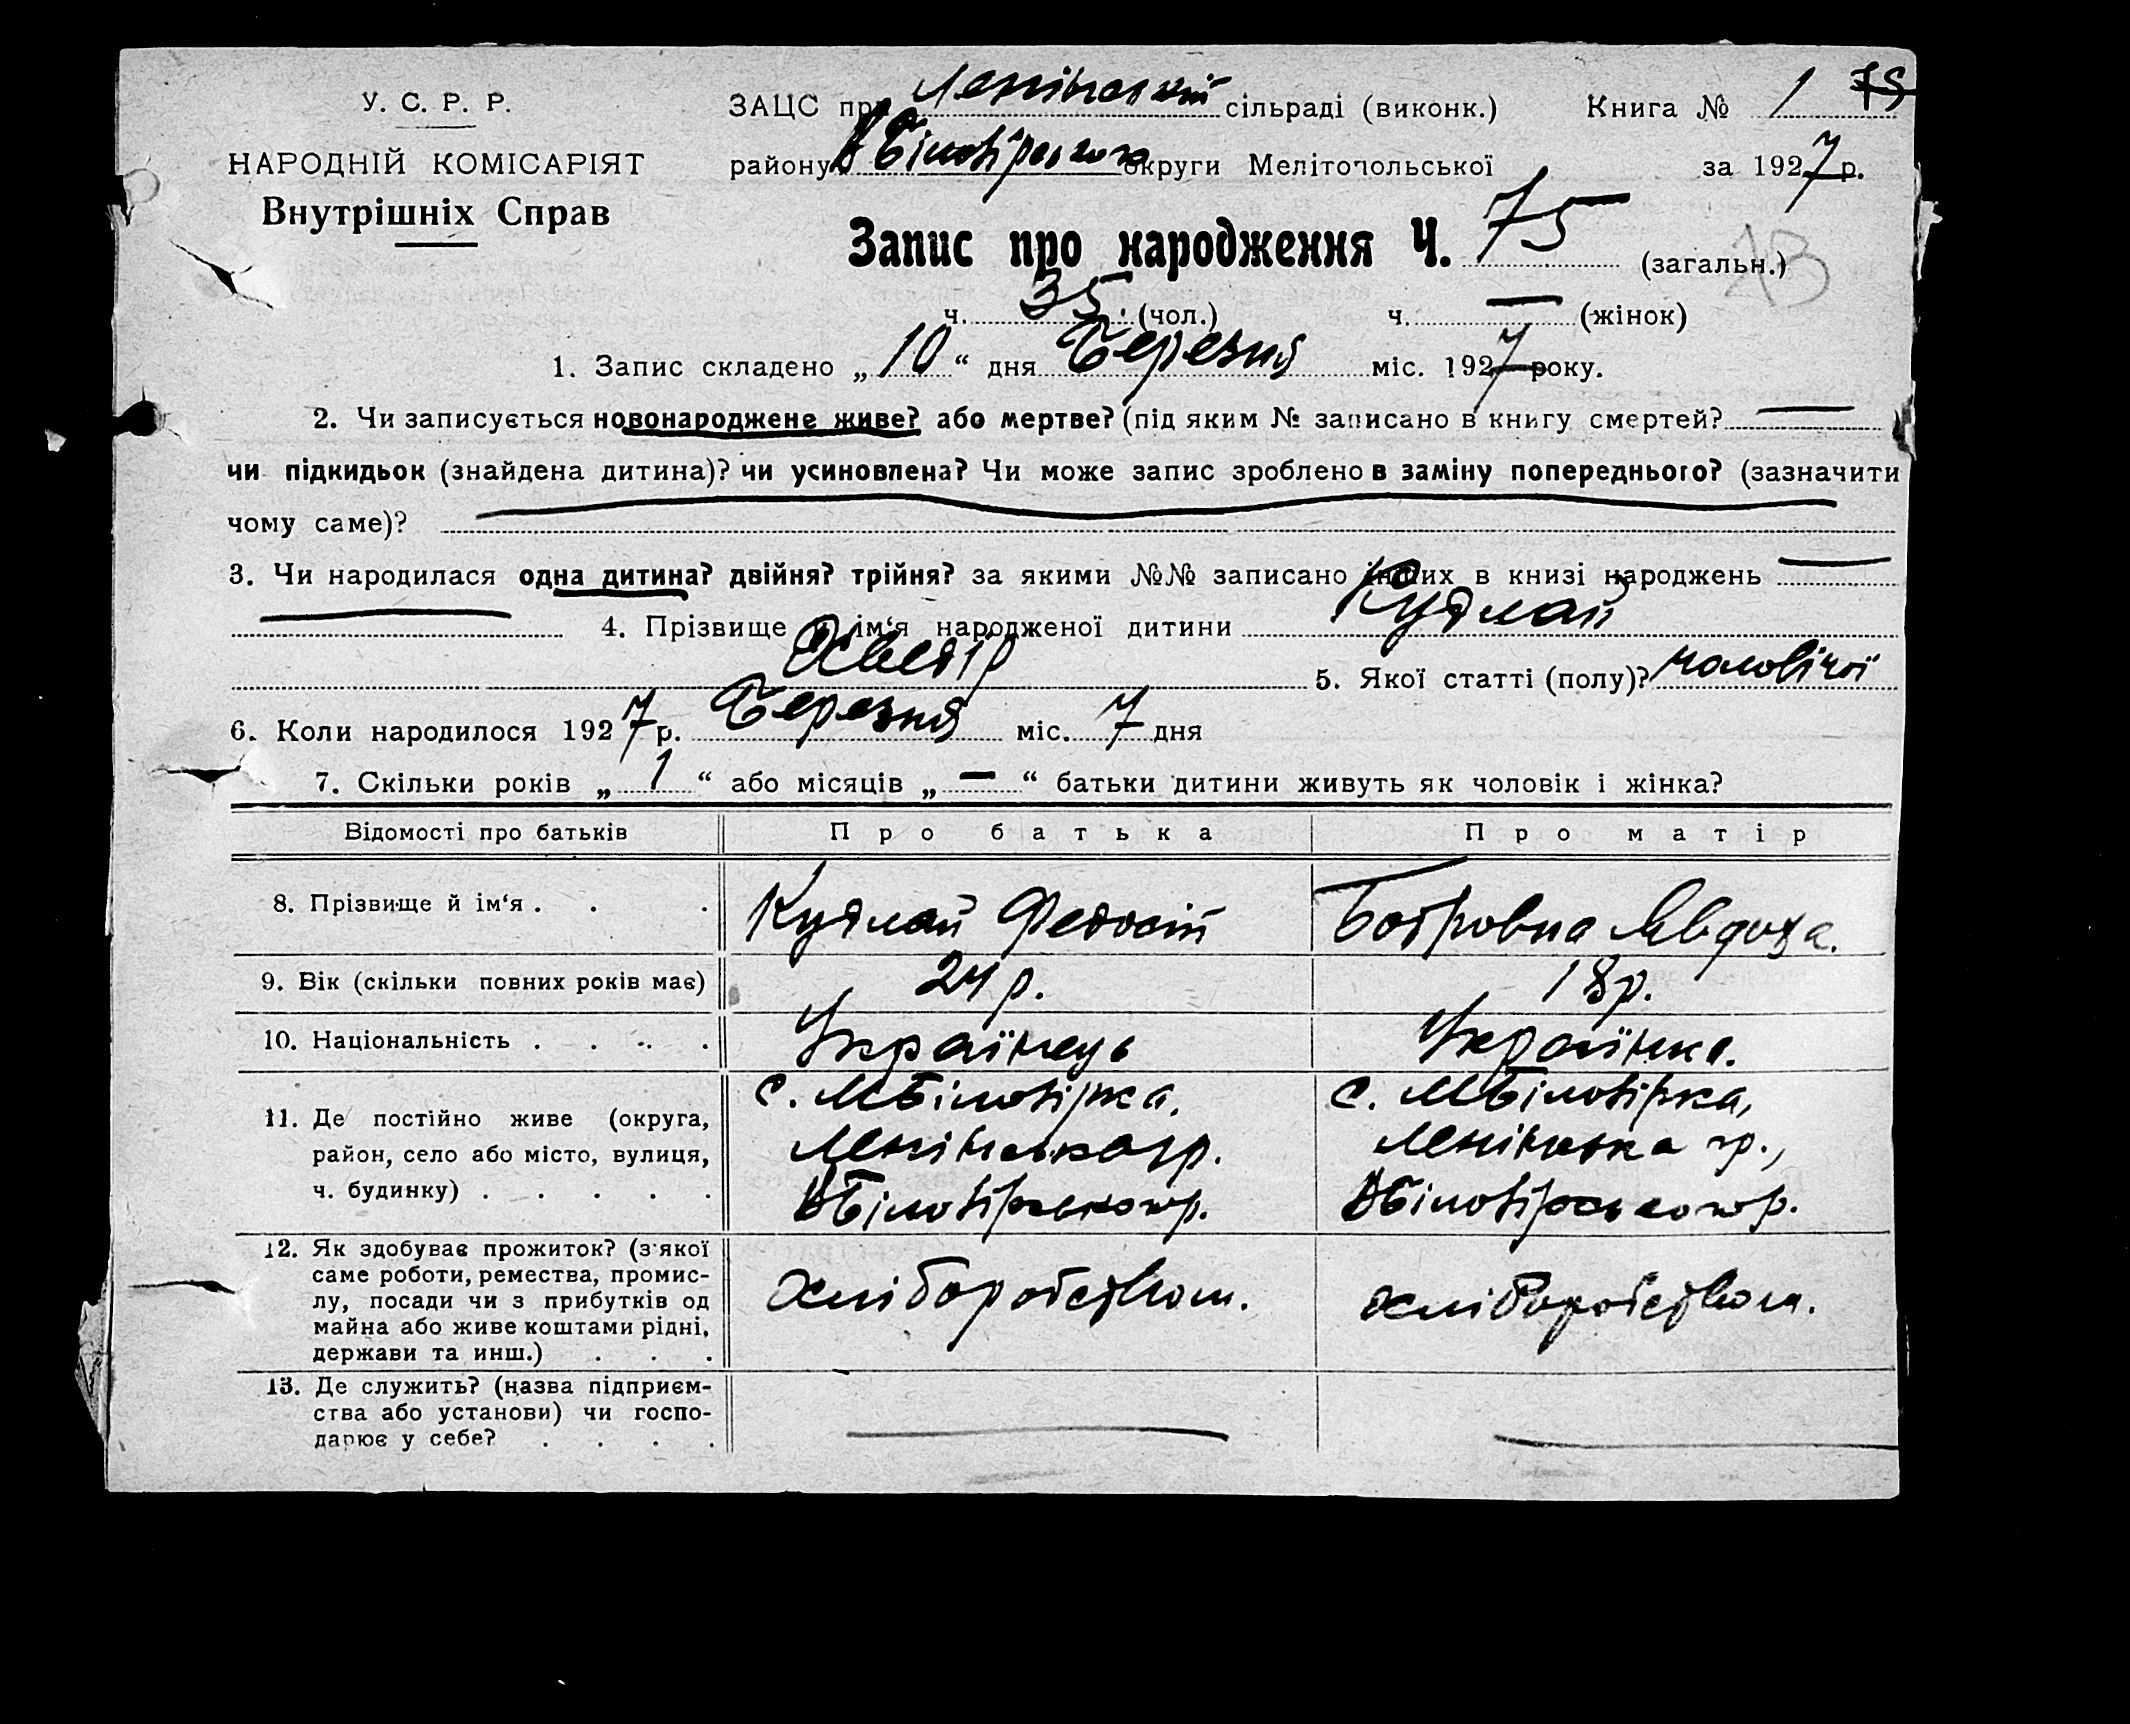 У. С. Р. Р.
НАРОДНІЙ КОМІСАРІЯТ
Внутрішніх Справ
ЗАЦС при Ленінській сільраді (виконк.) Книга № 1 75
району В Білозірського округи Мелітопольської за 1927 р.
Запис про народження Ч. 75 (загальн.)
ч. 35 (чол.) ч. — (жінок)
1. Запис складено „10“ дня Березня міс. 1927 року.
2. Чи записується новонароджене живе? або мертве? (під яким № записано в книгу смертей? —
чи підкидьок (знайдена дитина)? чи усиновлена? Чи може запис зроблено в заміну попереднього? (зазначити
чому саме)?
3. Чи народилася одна дитина? двійня? трійня? за якими №№ записано інших в книзі народжень —
— 4. Прізвище й ім‘я народженої дитини Кудлай
5. Якої статті (полу)? чоловічої
6. Коли народилося 1927 р. Березня міс. 7 дня
7. Скільки років „1“ або місяців „—“ батьки дитини живуть як чоловік і жінка?
Відомості про батьків Про батька Про матір
8. Прізвище й ім‘я . . . Кудлай Федосій Бобровна Явдоха.
9. Вік (скільки повних років має) 24 р. 18 р.
10. Національність . . . . Українець Українка.
11. Де постійно живе (округа,
район, село або місто, вулиця,
ч. будинку) . . . . .
с. МБілозірка,
Ленінська р.
ВБілозірського р.
с. МБілозірка,
Ленінська р.,
ВБілозірського р.
12. Як здобуває прожиток? (з‘якої
саме роботи, ремества, промис-
лу, посади чи з прибутків од
майна або живе коштами рідні,
держави та инш.) . . .
хліборобством.
хліборобством.
13. Де служить? (назва підприєм-
ства або установи) чи госпо-
дарює у себе? . . . .